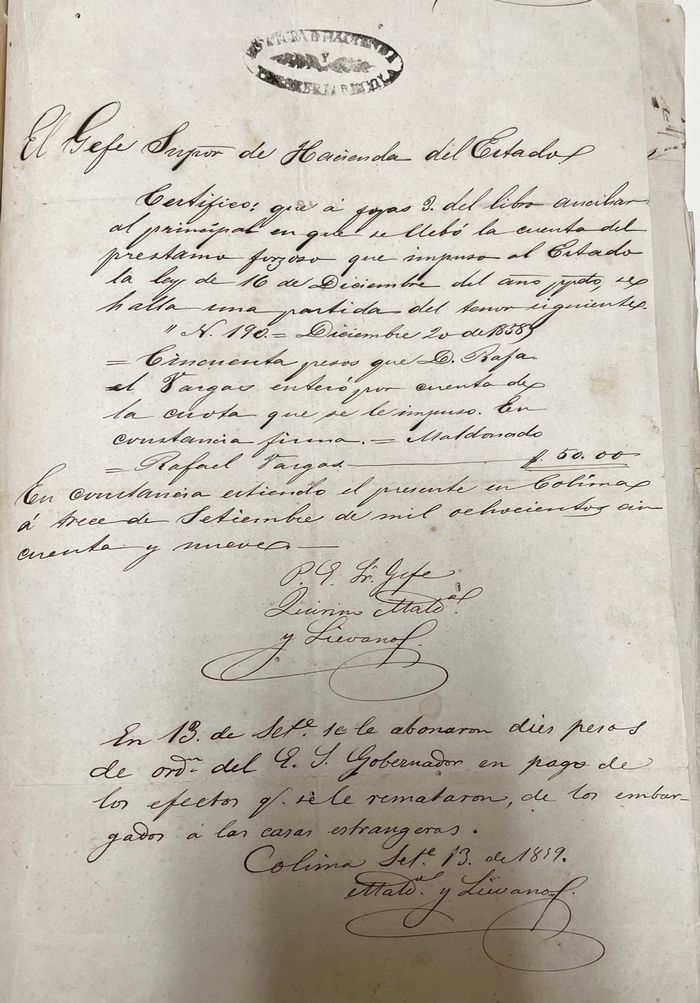 HACIENDA
Y
El Gefe Supor de Hacienda del Estado
Certifico: que á fojas 3. del libro aucibar
al principal en que se llebó la cuenta del
prestamo forzoso que impuso al Estado
la ley de 16 de Diciembre del ano ppdo, se
halla una partida del tenor siguiente.
" N. 190. = Diciembre 20 de 1858
= Cincuenta pesos que D. Rafa
el Vargas enteró por cuenta de
la cuota que se le impuso. En
constancia firma. = Maldonado
= Rafael Vargas. — $. 50.00
En constancia estiendo el presente en Colima
á trece de Setiembre de mil ochocientos cin
cuenta y nueve. —
P. E. Sr. Gefe
Quirin Mald.
y Lievano
En 13. de Sete. se le abonaron dies pesos
de ordn. del E. S. Gobernador en pago de
los efectos q. se le remataron, de los embar-
gados á las casas estrangeras.
Colima Sete. 13. de 1859.
Mald. y Lievano